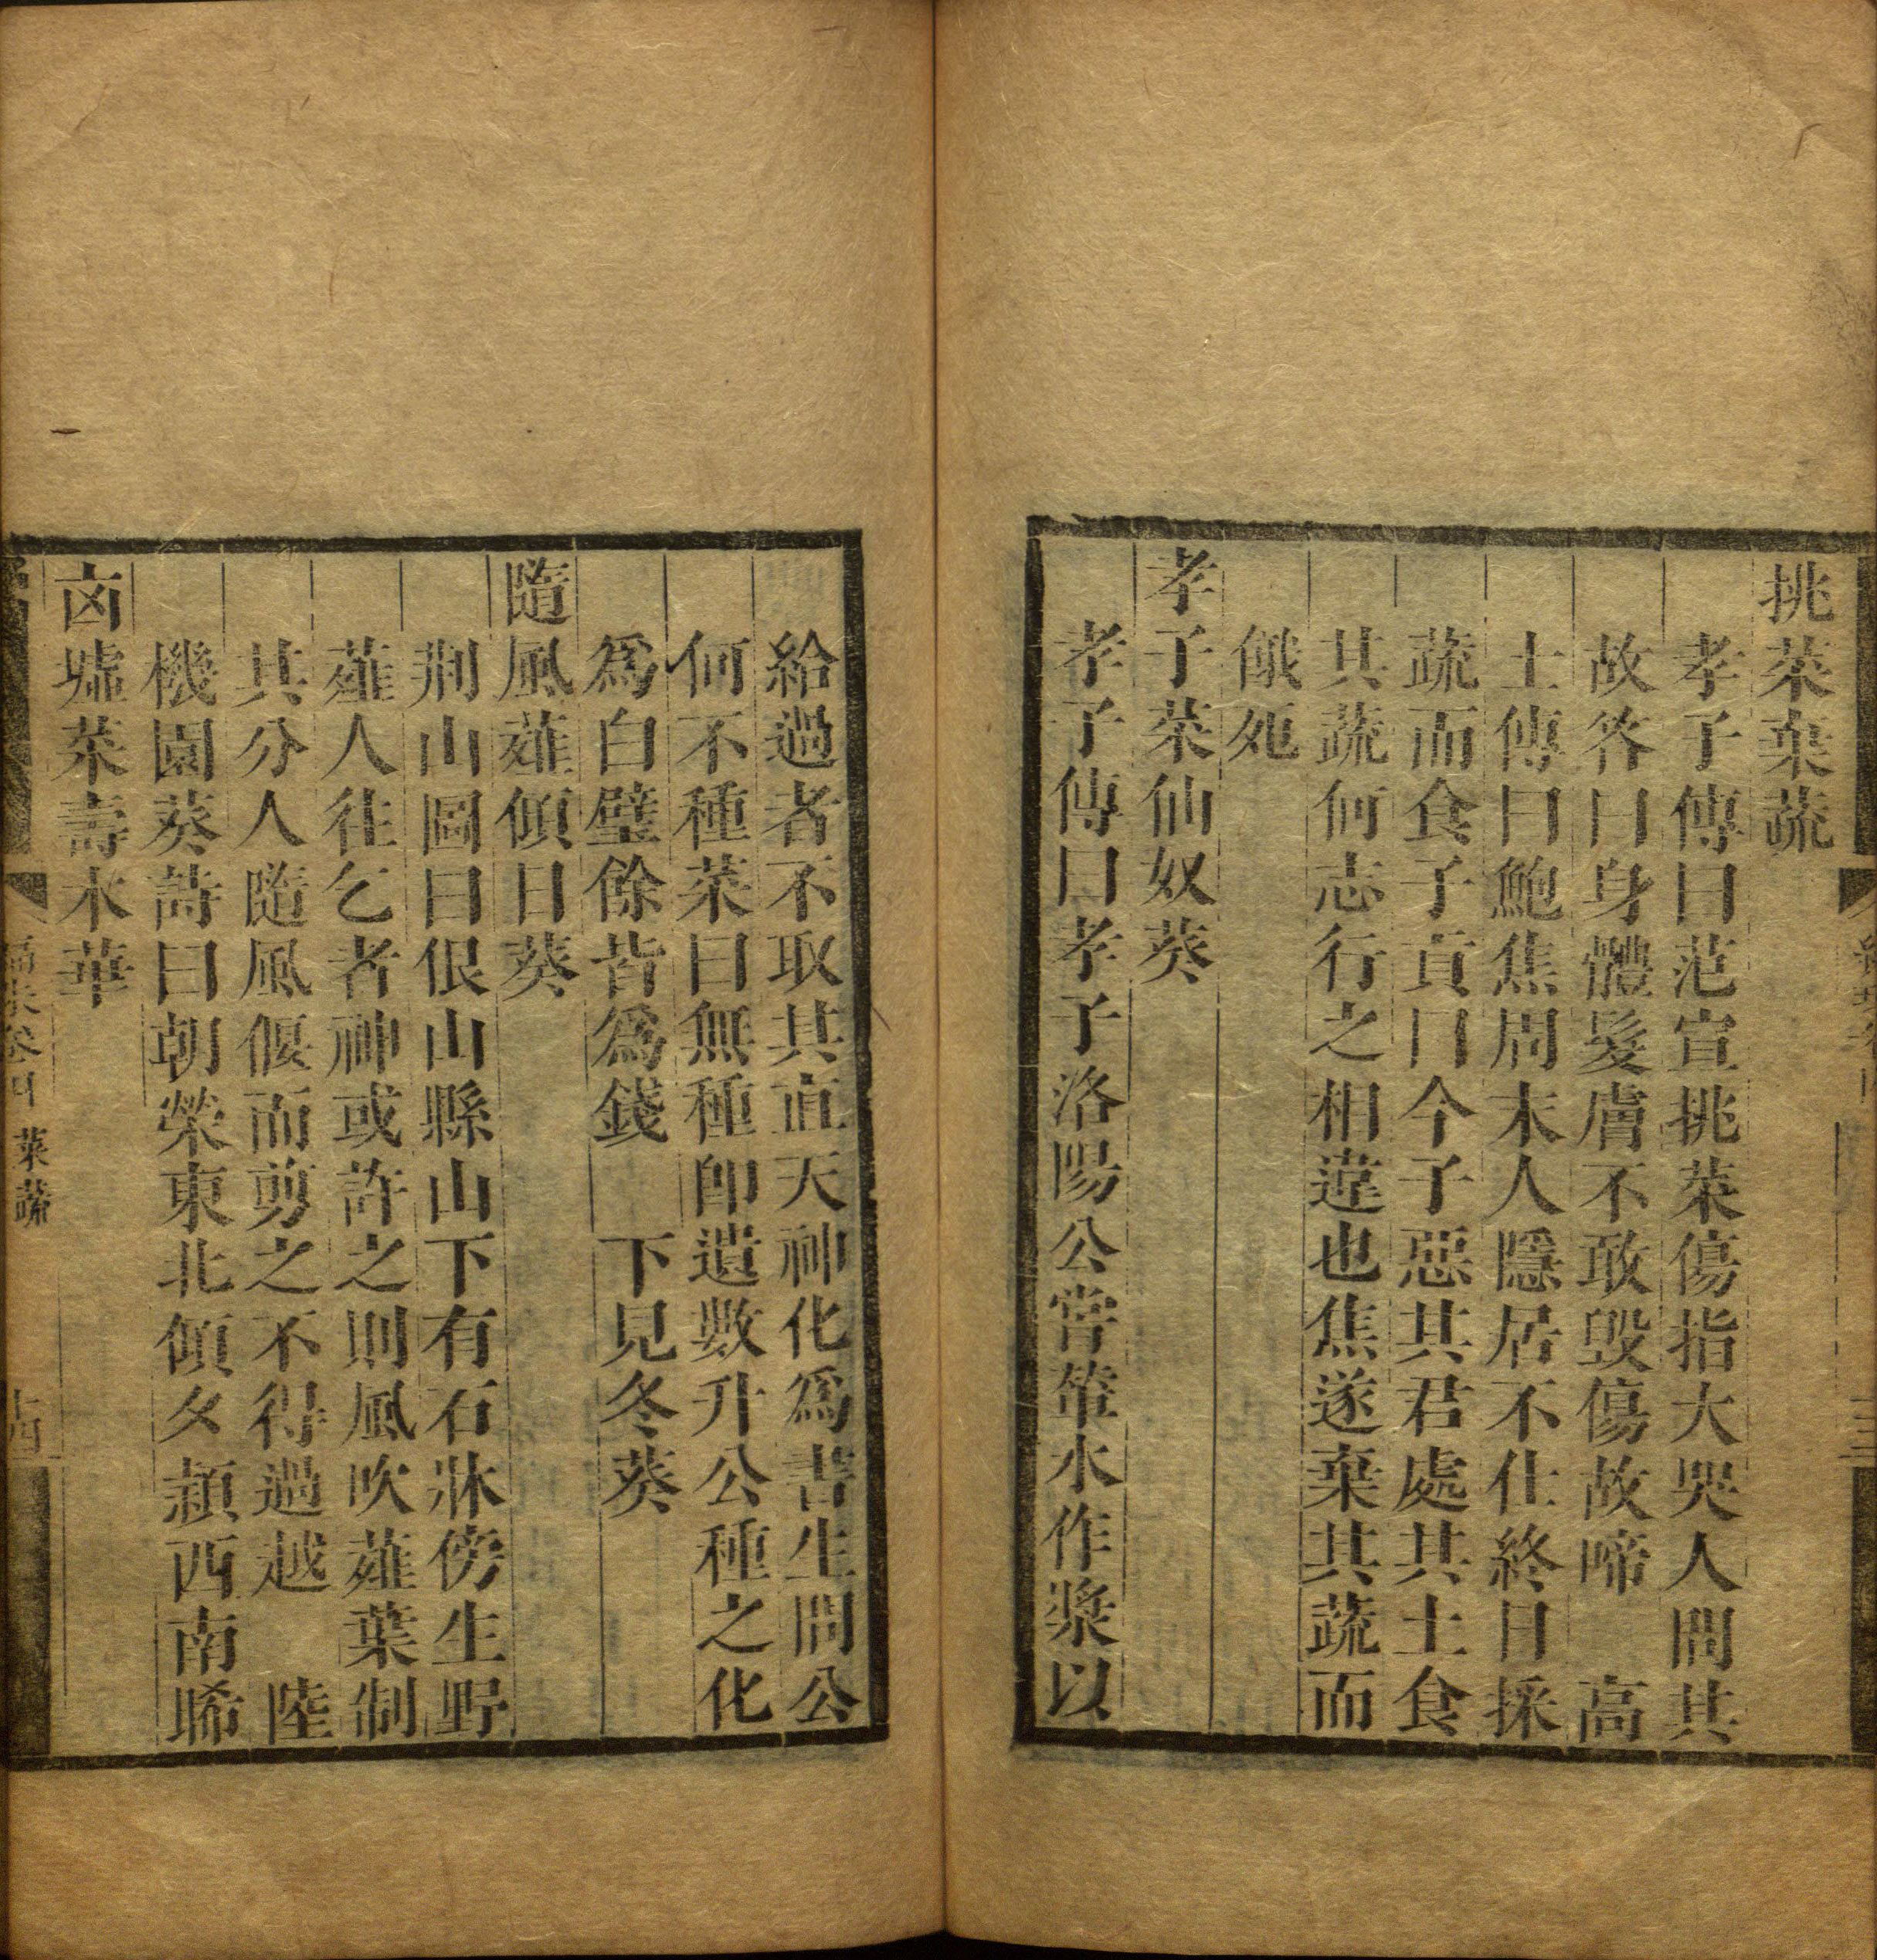 挑菜棄蔬
孝子傳曰范宣挑菜傷指大哭人問其
故答曰身體髮膚不敢毀傷故啼　高
士傳曰鮑焦周末人隱居不仕終日採
蔬而食子貢曰今子惡其君處其土食
其蔬何志行之相違也焦遂棄其蔬而
餓死
孝子菜仙奴葵
孝子傳曰孝子洛陽公嘗葷水作漿以
給過者不取其直天神化爲書生問公
何不種菜曰無種卽遺數升公種之化
爲白璧餘皆爲錢　下見冬葵
隨風薤傾日葵
荆山圖曰佷山縣山下有石牀傍生野
薤人往乞者神或許之則風吹薤葉制
其分人隨風偃而剪之不得過越　陸
機園葵詩曰朝榮東北傾夕穎西南晞
卤墟菜壽木華
菜蔬
十四